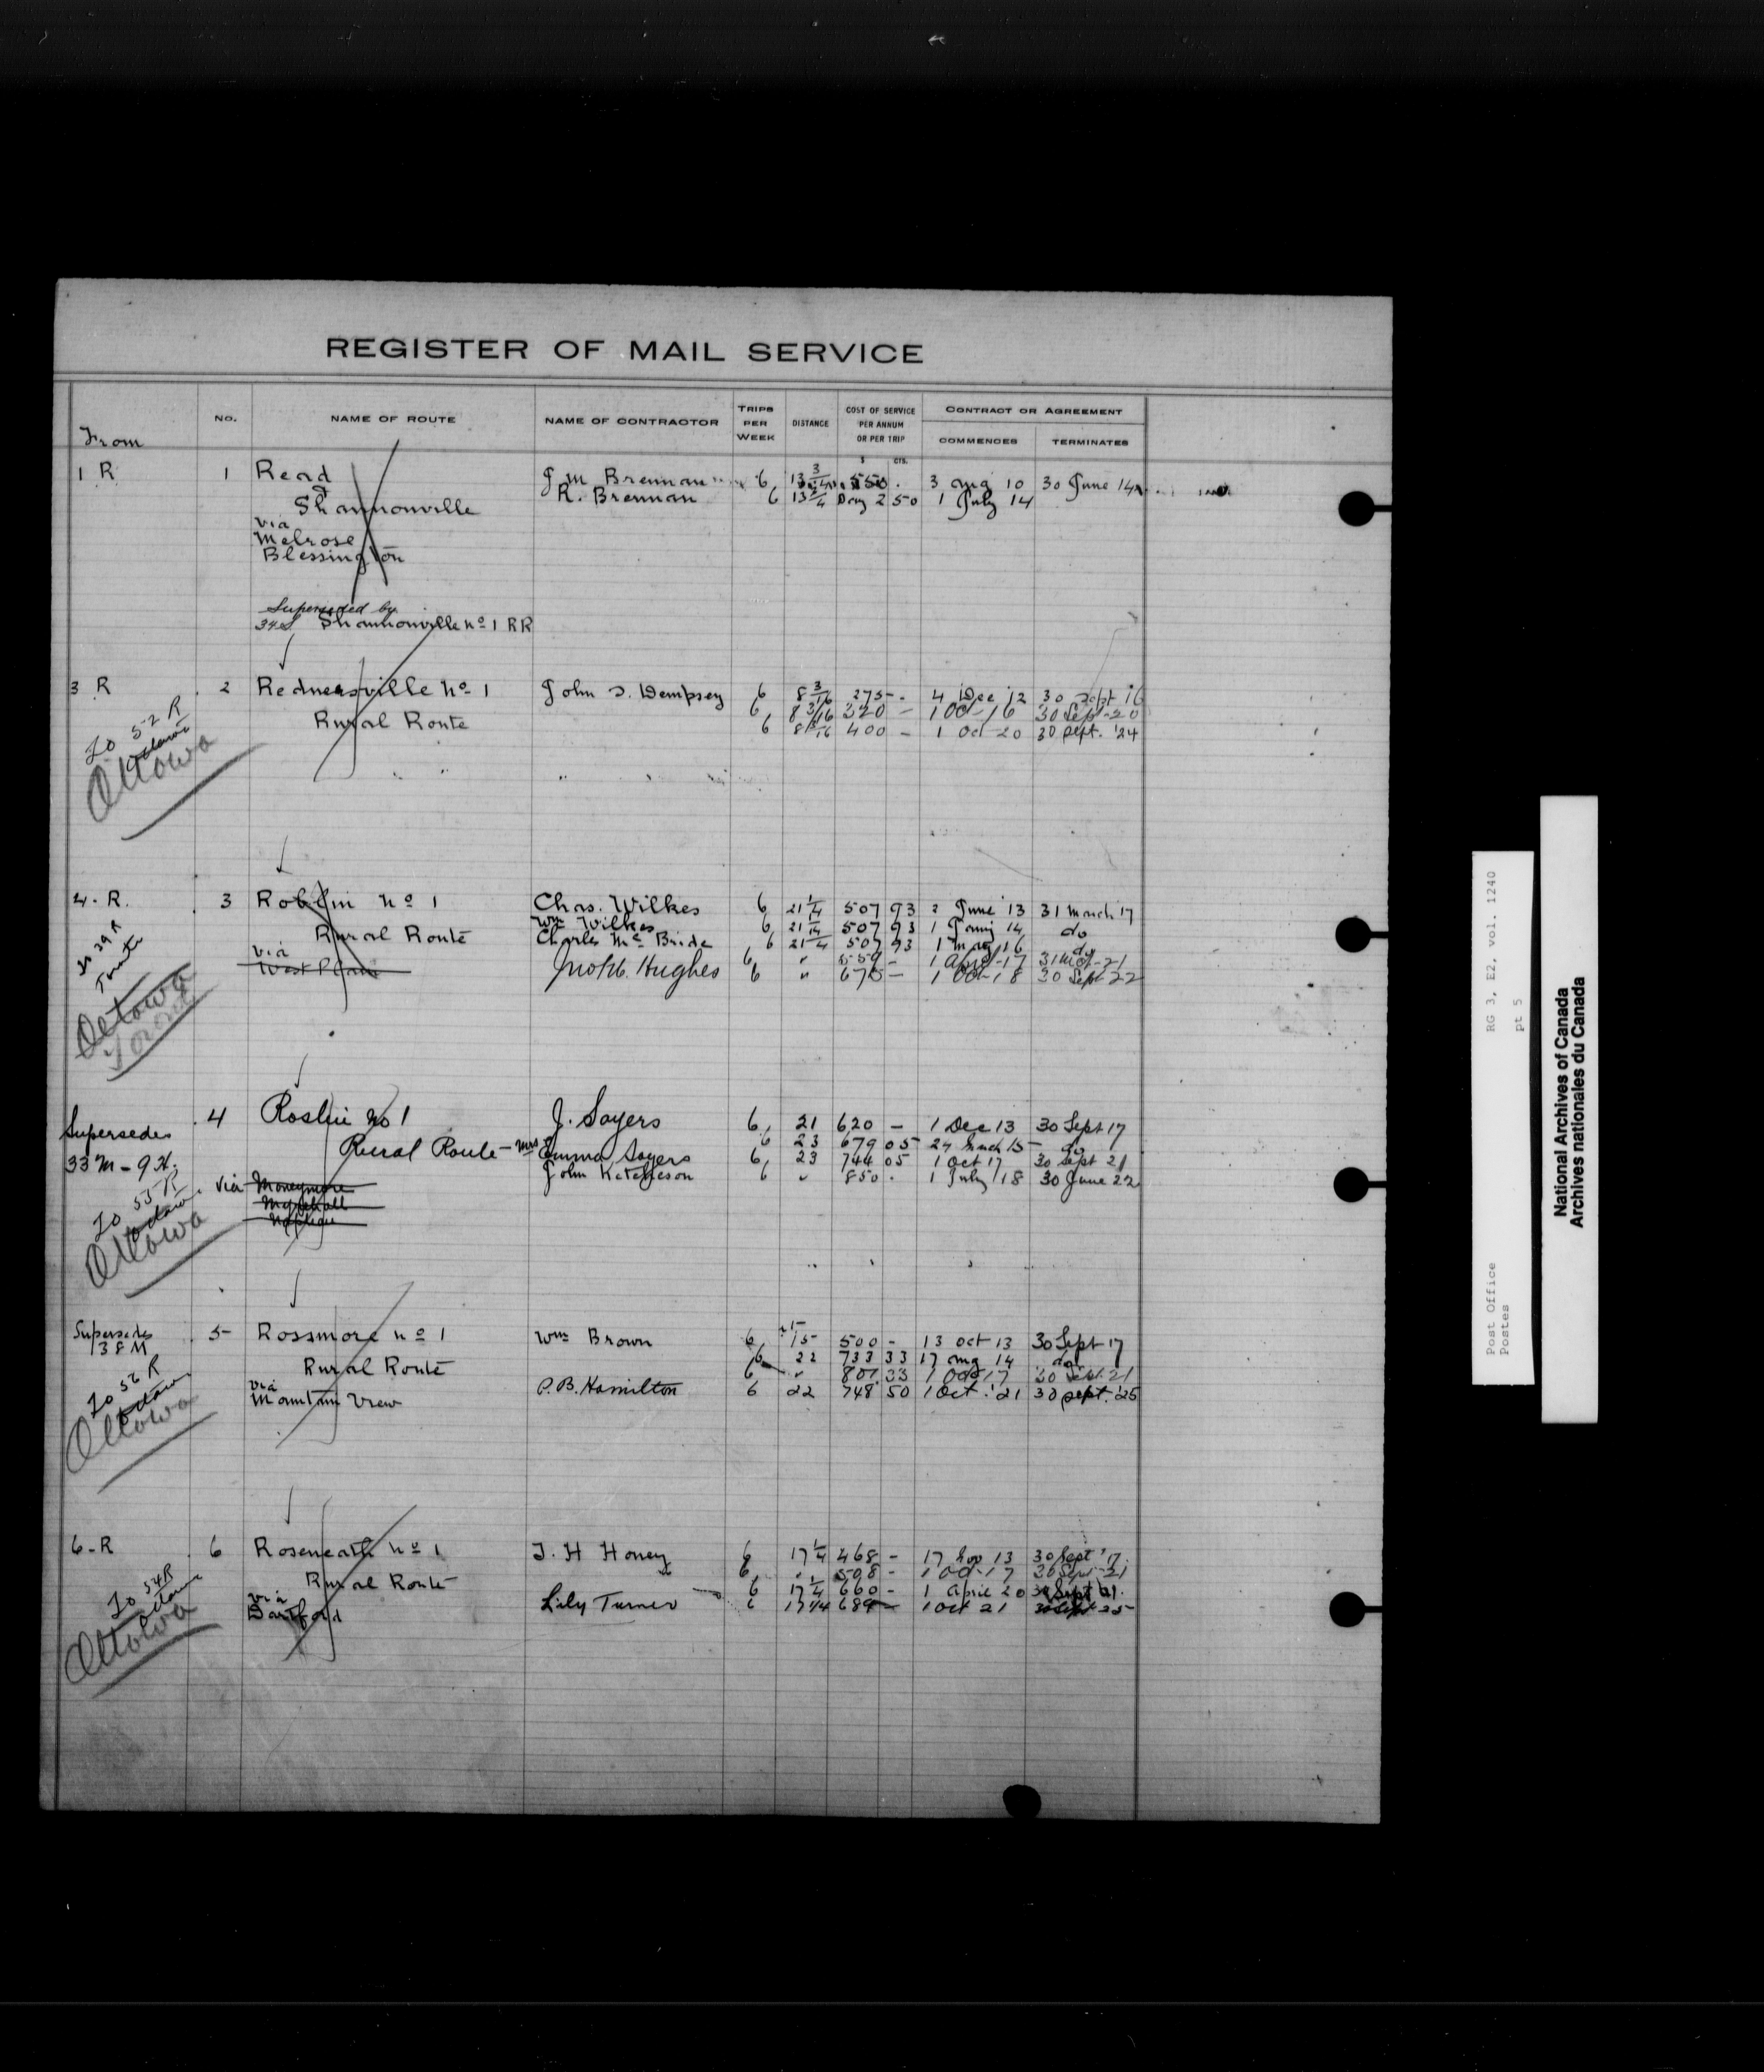 REGISTER OF MAIL SERVICE
From
NO.
NAME OF ROUTE
NAME OF CONTRACTOR
TRIPS PER WEEK
DISTANCE
COST OF SERVICE PER ANNUM OR PER TRIP
$ CTS.
CONTRACT OR AGREEMENT
COMMENCES
TERMINATES
1 R 1 Read J M Brennan 6 13 3/4 550. 3 Aug 10 30 June 14
& R. Brennan 6 13 3/4 Day 2 50 1 July 14
Shannonville
via
Melrose
Blessington
Superseded by
34 S. Shannonville No 1 RR
3 R 2 Rednersville No 1 John D. Dempsey 6 8 3/16 275 - 4 Dec 12 30 Sept 16
6 8 3/16 320 - 1 Oct-16 30 Sept-20
Rural Route 6 8 3/16 400 - 1 Oct 20 30 Sept. '24
To 52 R
Ottawa
Ottawa
4 - R. 3 Roblin No 1 Chas. Wilkes 6 21 1/4 507 93 2 June '13 31 March '17
Wm Wilkes 6 21 1/4 507 93 1 14 do
Rural Route Charles McBride 6 21 1/4 507 93 1 May 16 do
via 6 " - 1 April-17 31 Mch-21
West Plain Hughes 6 " 675 - 1 Oct-18 30 Sept-22
29 R
Toronto
Ottawa
Toronto
4 Roslin No 1 J. Sayers 6 21 620 - 1 Dec 13 30 Sept 17
Supersedes 6 23 679 05 24 March 15 - do
Rural Route - Mrs Emma Sayers 6 23 744 05 1 Oct 17 30 Sept 21
33 M - 9 H. John Ketcheson 6 " 850. 1 July 18 30 June 22
via Moneymore
Marshall
To 55 R
Ottawa
Ottawa
Supersedes 5 Rossmore No 1 Wm Brown 6 15 500 - 13 Oct 13 30 Sept 17
138 M 6 22 733 33 17 Aug 14 do
Rural Route 6 " 807 33 1 Oct 17 30 Sept. 21
via P. B. Hamilton 6 22 748 50 1 Oct. '21 30 Sept. '25
Mountain View
To 56 R
Ottawa
Ottawa
6 - R 6 Roseneath No 1 T. H Honey 6 17 1/4 468 - 17 Nov 13 30 Sept '17.
6 " 508 - 1 Oct-17 30 Sept-21
Rural Route 6 17 1/4 660 - 1 April 20 30 Sept 21.
via Lily Turner 6 17 1/4 689 - 1 Oct 21 30 Sept 25
Dartford
To 54 R
Ottawa
Ottawa
Post Office
Postes
RG 3, E2, vol. 1240
pt 5
National Archives of Canada
Archives nationales du Canada